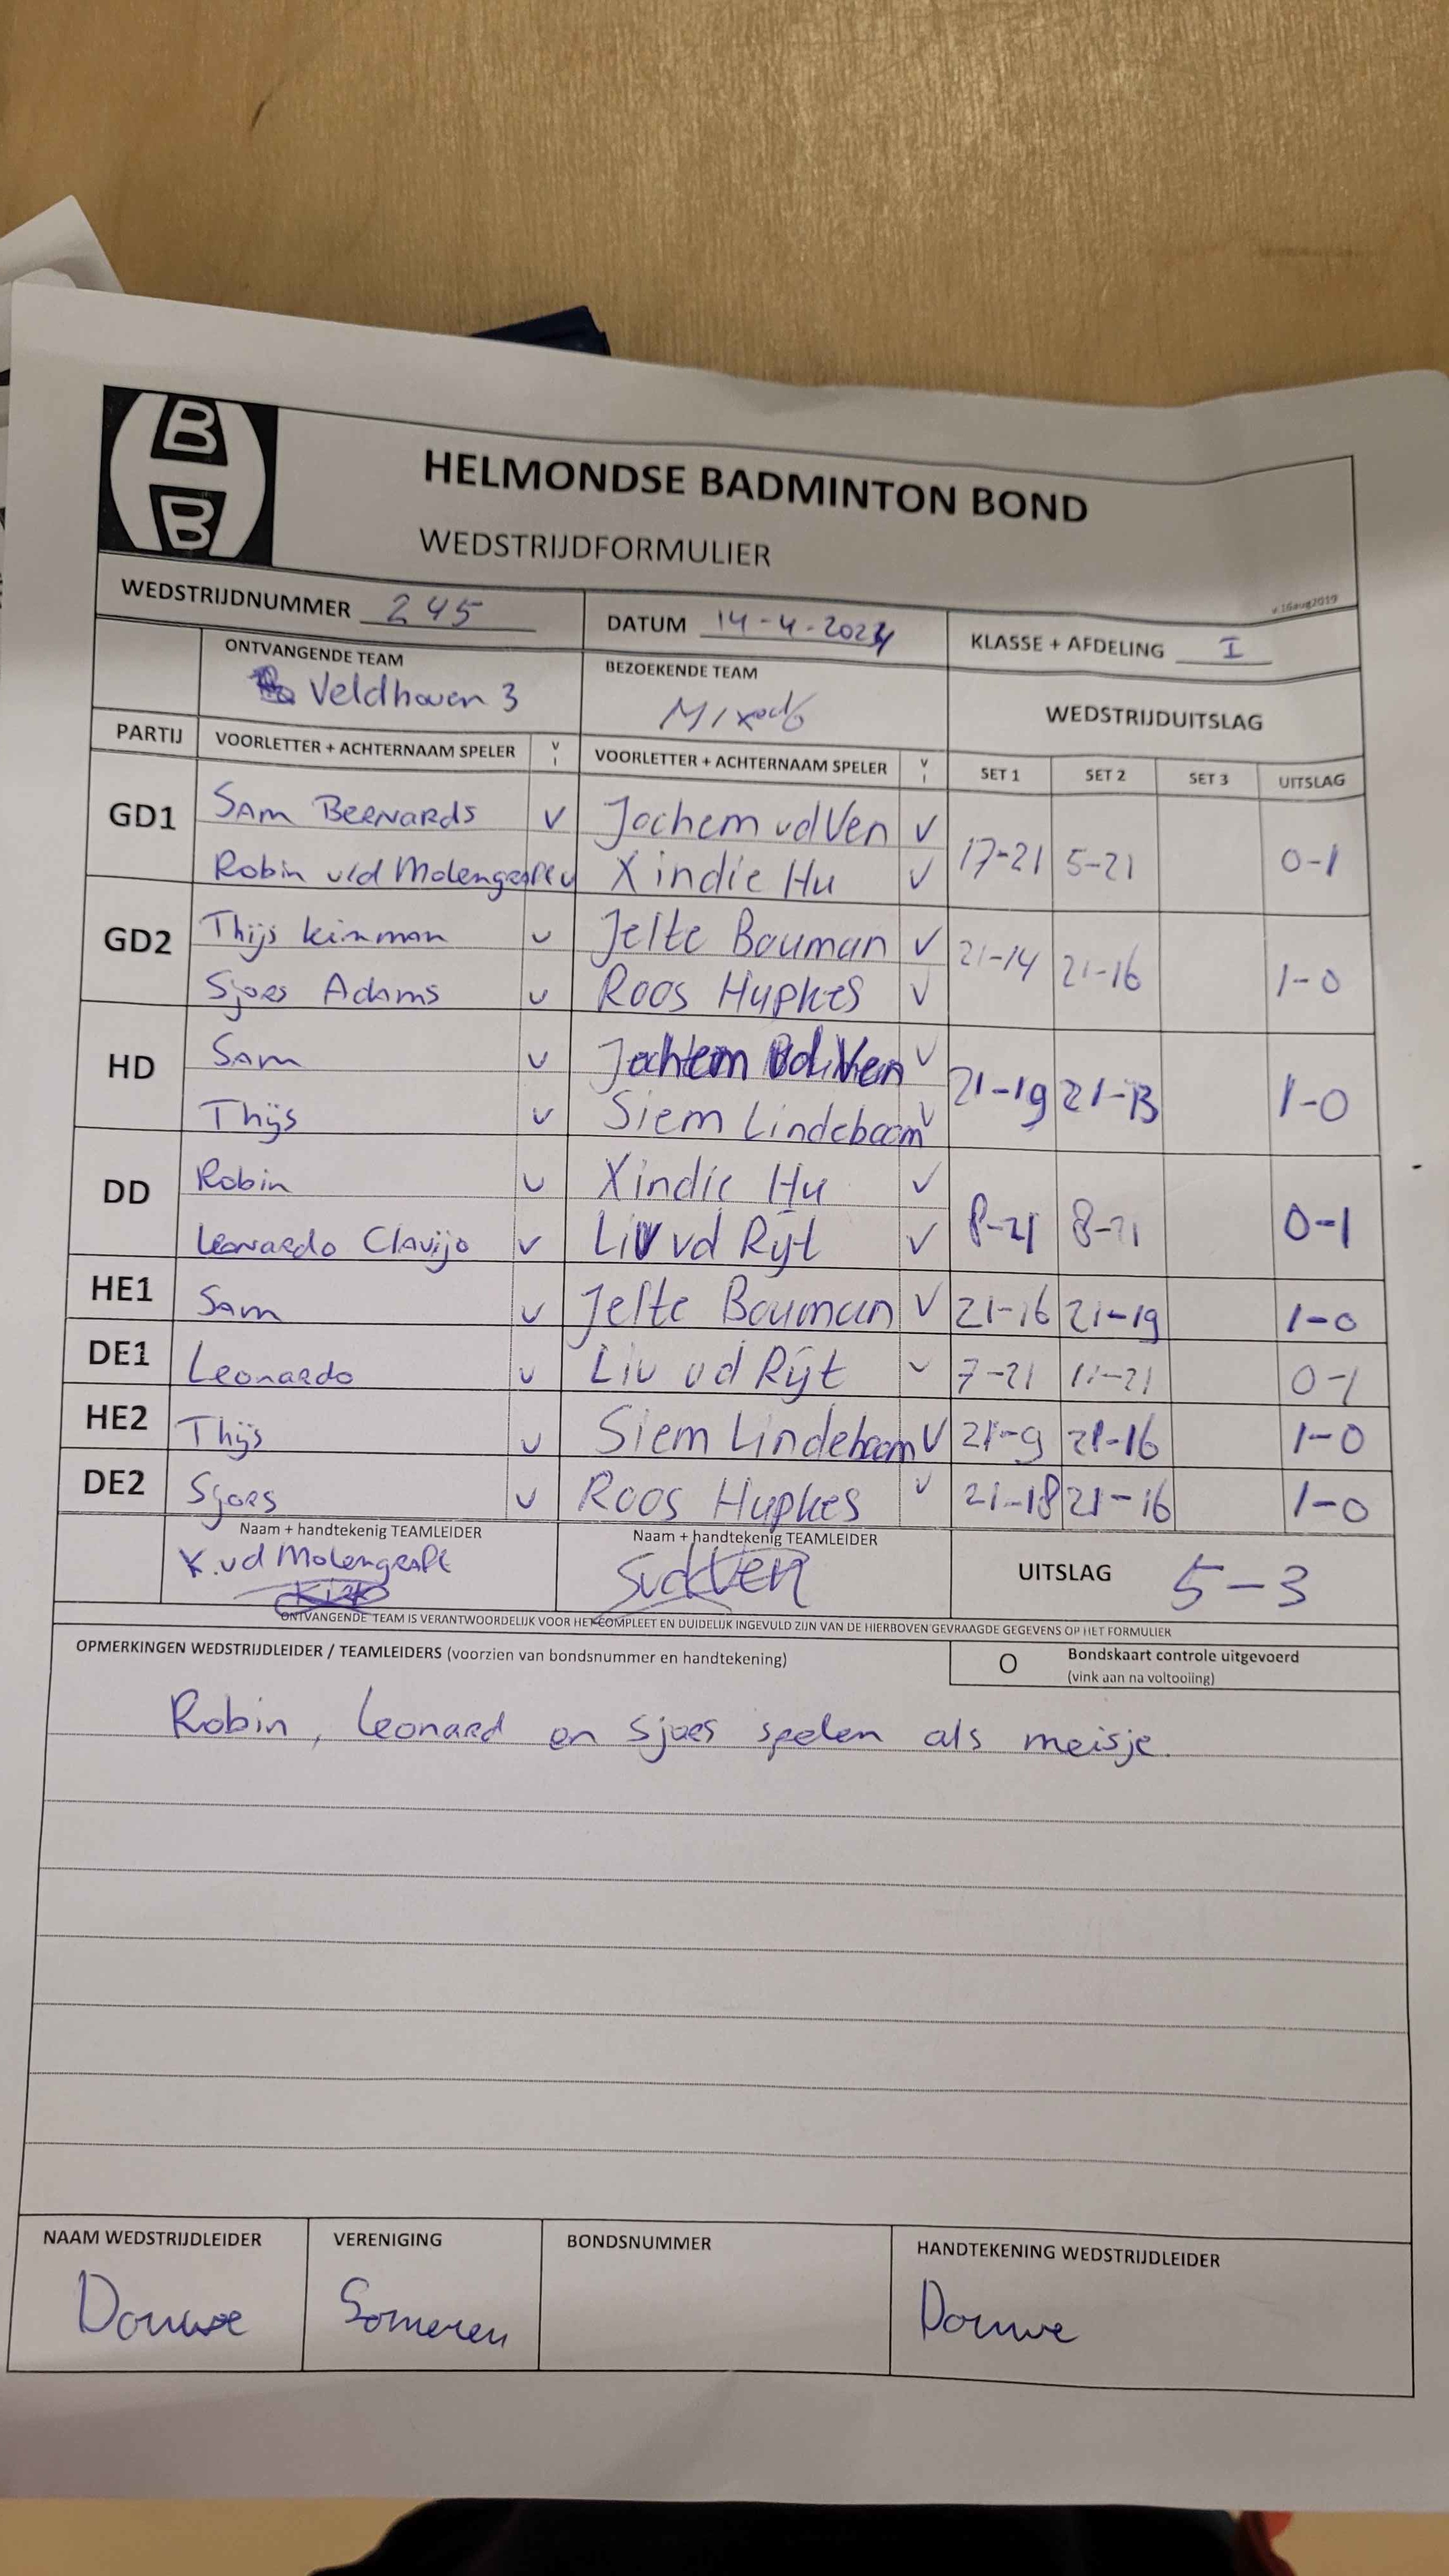 B
B
HELMONDSE BADMINTON BOND
WEDSTRIJDFORMULIER
v.16aug2019
WEDSTRIJDNUMMER 245 DATUM 14-4-2024 KLASSE + AFDELING I
ONTVANGENDE TEAM BEZOEKENDE TEAM WEDSTRIJDUITSLAG
Veldhoven 3
PARTIJ VOORLETTER + ACHTERNAAM SPELER V I VOORLETTER + ACHTERNAAM SPELER V I SET 1 SET 2 SET 3 UITSLAG
GD1 Sam Bernards V Jochem vd Ven V 17-21 5-21 0-1
Robin v/d Xindie Hu V
GD2 Thijs kinman V Jelte Bouman V 21-14 21-16 1-0
Sjors Adams V Roos Hupkes V
HD Sam V Jochem vd Ven V 21-19 21-13 1-0
Thijs V Siem Lindeboom V
DD Robin V Xindie Hu V 8-21 8-21 0-1
Leonardo Clavijo V Liv vd Rijt V
HE1 Sam V Jelte Bouman V 21-16 21-19 1-0
DE1 Leonardo V Liv vd Rijt V 7-21 11-21 0-1
HE2 Thijs V Siem Lindeboom V 21-9 21-16 1-0
DE2 Sjors V Roos Hupkes V 21-18 21-16 1-0
Naam + handtekenig TEAMLEIDER Naam + handtekenig TEAMLEIDER UITSLAG 5-3
K.vd Molengraft
ONTVANGENDE TEAM IS VERANTWOORDELIJK VOOR HET COMPLEET EN DUIDELIJK INGEVULD ZIJN VAN DE HIERBOVEN GEVRAAGDE GEGEVENS OP HET FORMULIER
OPMERKINGEN WEDSTRIJDLEIDER / TEAMLEIDERS (voorzien van bondsnummer en handtekening) O Bondskaart controle uitgevoerd
(vink aan na voltooiing)
Robin, Leonard en Sjors spelen als meisje.
NAAM WEDSTRIJDLEIDER VERENIGING BONDSNUMMER HANDTEKENING WEDSTRIJDLEIDER
Douwe Someren Douwe